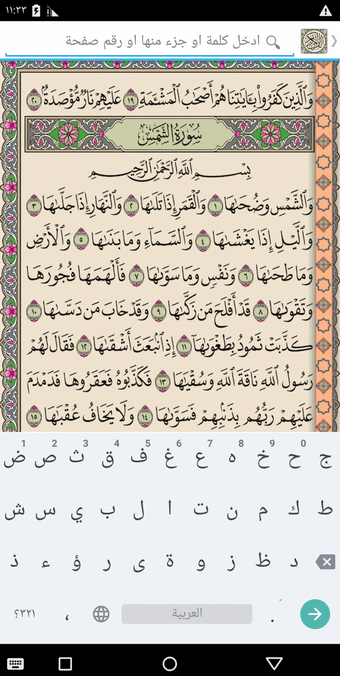 ١١:٣٣
ادخل كلمة او جزء منها او رقم صفحة
وَٱلَّذِينَ كَفَرُوا۟ بِـَٔايَٰتِنَا هُمْ أَصْحَٰبُ ٱلْمَشْـَٔمَةِ ١٩ عَلَيْهِمْ نَارٌ مُّؤْصَدَةٌۢ ٢٠
سُورَةُ الشَّمْسِ
بِسْمِ ٱللَّهِ ٱلرَّحْمَٰنِ ٱلرَّحِيمِ
وَٱلشَّمْسِ وَضُحَىٰهَا ١ وَٱلْقَمَرِ إِذَا تَلَىٰهَا ٢ وَٱلنَّهَارِ إِذَا جَلَّىٰهَا ٣
وَٱلَّيْلِ إِذَا يَغْشَىٰهَا ٤ وَٱلسَّمَآءِ وَمَا بَنَىٰهَا ٥ وَٱلْأَرْضِ
وَمَا طَحَىٰهَا ٦ وَنَفْسٍ وَمَا سَوَّىٰهَا ٧ فَأَلْهَمَهَا فُجُورَهَا
وَتَقْوَىٰهَا ٨ قَدْ أَفْلَحَ مَن زَكَّىٰهَا ٩ وَقَدْ خَابَ مَن دَسَّىٰهَا ١٠
كَذَّبَتْ ثَمُودُ بِطَغْوَىٰهَآ ١١ إِذِ ٱنۢبَعَثَ أَشْقَىٰهَا ١٢ فَقَالَ لَهُمْ
رَسُولُ ٱللَّهِ نَاقَةَ ٱللَّهِ وَسُقْيَٰهَا ١٣ فَكَذَّبُوهُ فَعَقَرُوهَا فَدَمْدَمَ
عَلَيْهِمْ رَبُّهُم بِذَنۢبِهِمْ فَسَوَّىٰهَا ١٤ وَلَا يَخَافُ عُقْبَٰهَا ١٥
1 2 3 4 5 6 7 8 9 0
ض ص ث ق ف غ ع ه خ ح ج
ش س ي ب ل ا ت ن م ك ط
ذ ء ؤ ر ى ة و ز ظ د
؟٣٢١ ، العربية .